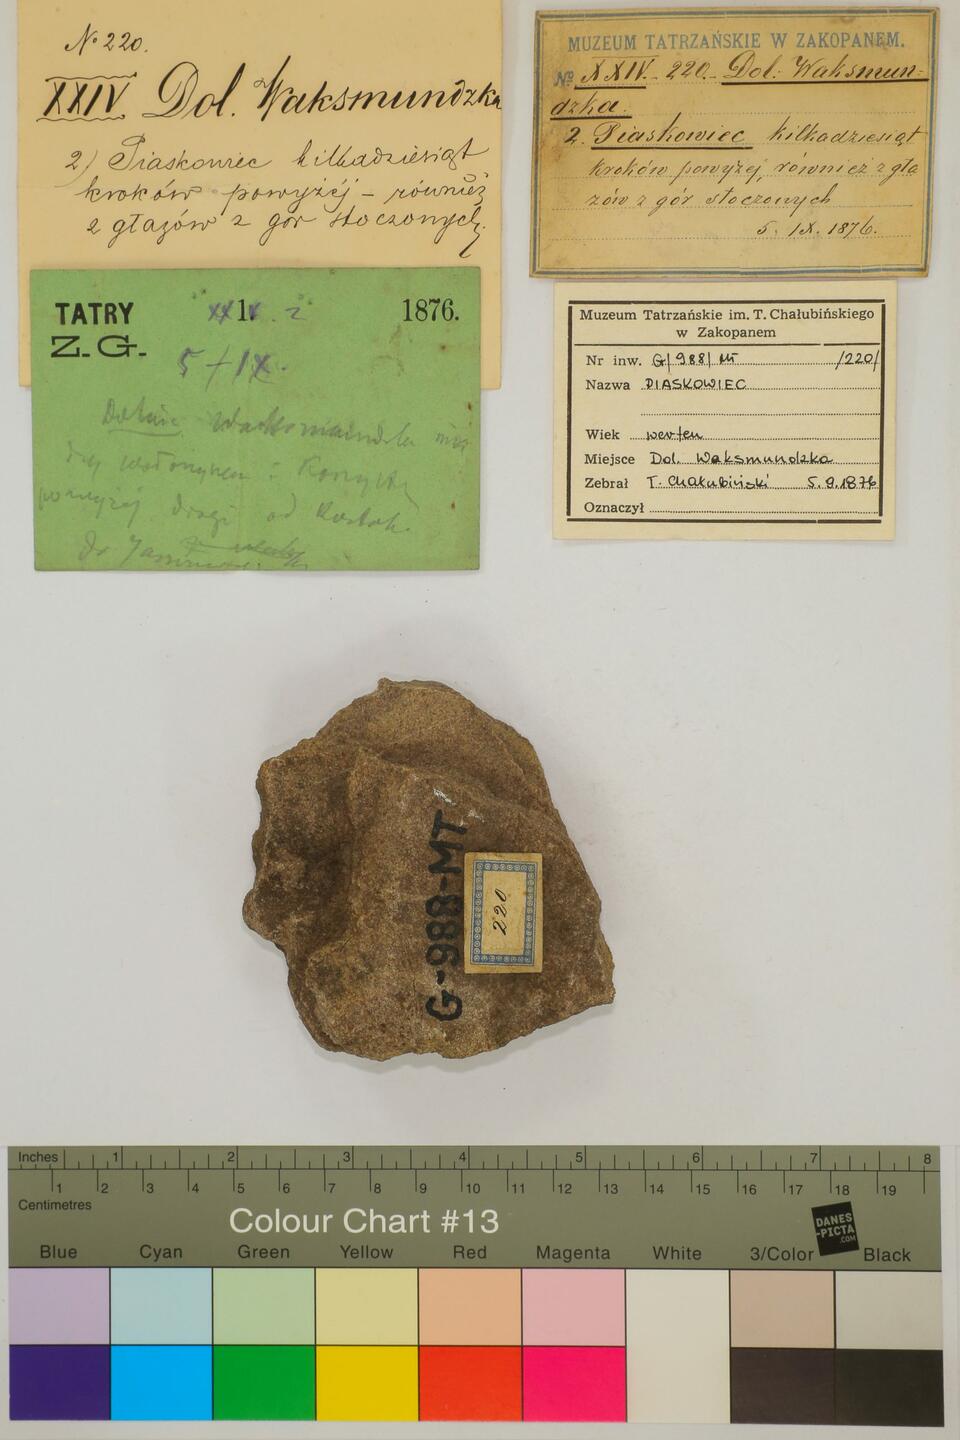 № 220.
XXIV Dol. Waksmundzka
2) Piaskowiec kilkadziesiąt
kroków powyżéj – również
z głazów z gór stoczonych.
MUZEUM TATRZAŃSKIE W ZAKOPANEM.
№ XXIV. 220. Dol. Waksmun-
dzka.
2. Piaskowiec kilkadziesiąt
kroków powyżej, również z gła
zów z gór stoczonych
5. IX. 1876.
TATRY 1876.
Z. G.
5 IX.
powyżej drogi od
Dr
Muzeum Tatrzańskie im. T. Chałubińskiego
w Zakopanem
Nr inw. G/988/MT /220/
Nazwa PIASKOWIEC
Wiek werfen
Miejsce Dol. Waksmundzka
Zebrał T. Chałubiński 5.9.1876
Oznaczył
G-988-MT
220
Inches 1 2 3 4 5 6 7 8
1 2 3 4 5 6 7 8 9 10 11 12 13 14 15 16 17 18 19
Centimetres
Colour Chart #13
DANES
-PICTA
.COM
Blue Cyan Green Yellow Red Magenta White 3/Color Black